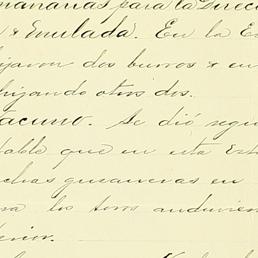 mananas para la Direc
& Emulada. En la E
jaron dos burros & en
higando otros dos.
tacuno. Se dió segui
table que en esta Est
chas gusaneras en
ra los toros anduvie
terior.